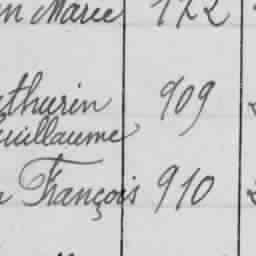 n Marie 172
thurin 909
uillaume
François 910